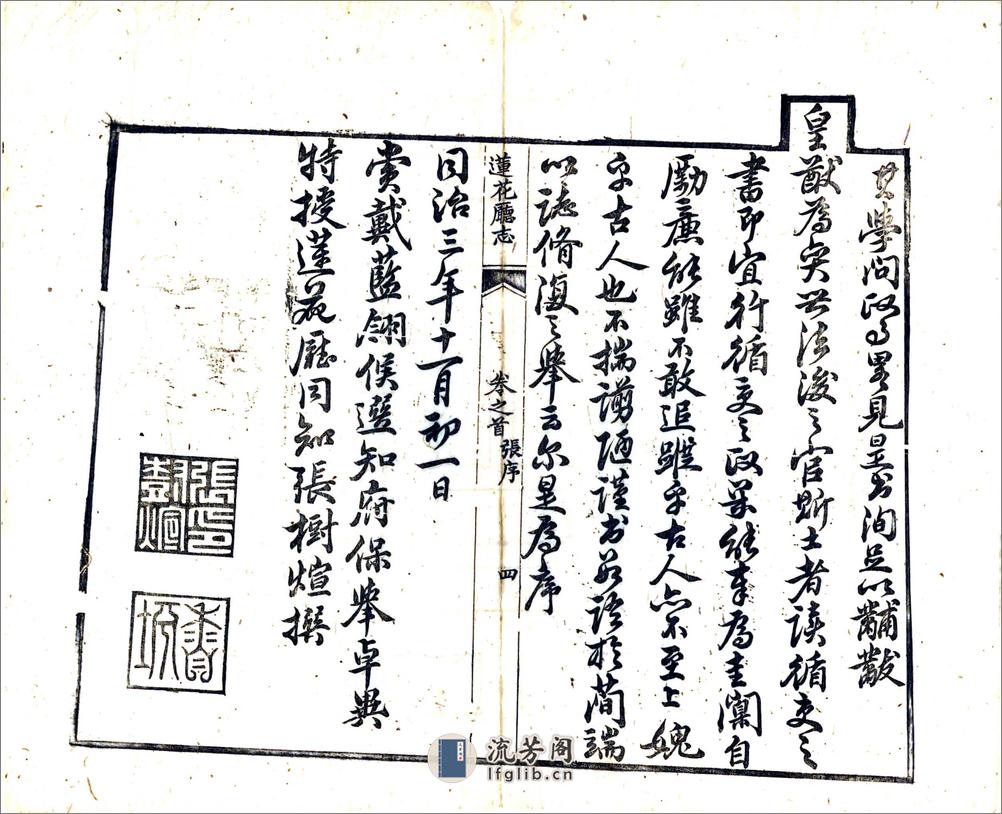 其學問政事畧見是書洵足以黼黻
皇猷為突世法後之官斯土者讀循吏之
書即宜行循吏之政果能奉為圭臬自
勵廉能雖不敢追蹤乎古人亦不至上媿
乎古人也不揣謭陋謹書數語於簡端
以誌脩復之舉云尔是為序
蓮花廳志
卷之首
張序
四
同治三年十一月初一日
賞戴藍翎候選知府保舉卓異
特授蓮花廳同知張樹煊撰
流芳阁
lfglib.cn